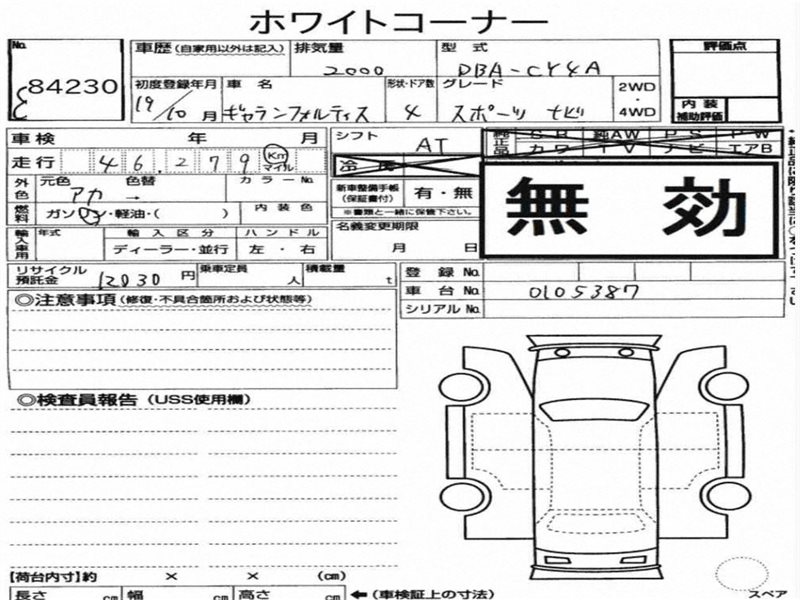 ホワイトコーナー
No. 84230
車歴 (自家用以外は記入) 排気量 2000 型式 DBA-CY4A
評価点
初度登録年月 19/10月 車名 ギャランフォルティス 形状・ドア数 4 グレード スポーツ ナビ 2WD・4WD
内装補助評価
車検 年 月 シフト AT
純正品 SR 純AW PS PW
カワ TV ナビ エアB
走行 46,279 Km マイル
外色 元色 アカ 色替 → カラーNo.
新車整備手帳(保証書付) 有・無
※書類と一緒に保管下さい。
無効
燃料 ガソリン・軽油・( ) 内装色
名義変更期限 月 日
輸入車用 年式 輸入区分 ディーラー・並行 ハンドル 左・右
リサイクル預託金 12030円 乗車定員 人 積載量 t
登録 No.
車台 No. 0105387
シリアル No.
◎注意事項 (修復・不具合箇所および状態等)
◎検査員報告 (USS使用欄)
【荷台内寸】約 × × (cm)
長さ cm 幅 cm 高さ cm ←(車検証上の寸法)
スペア